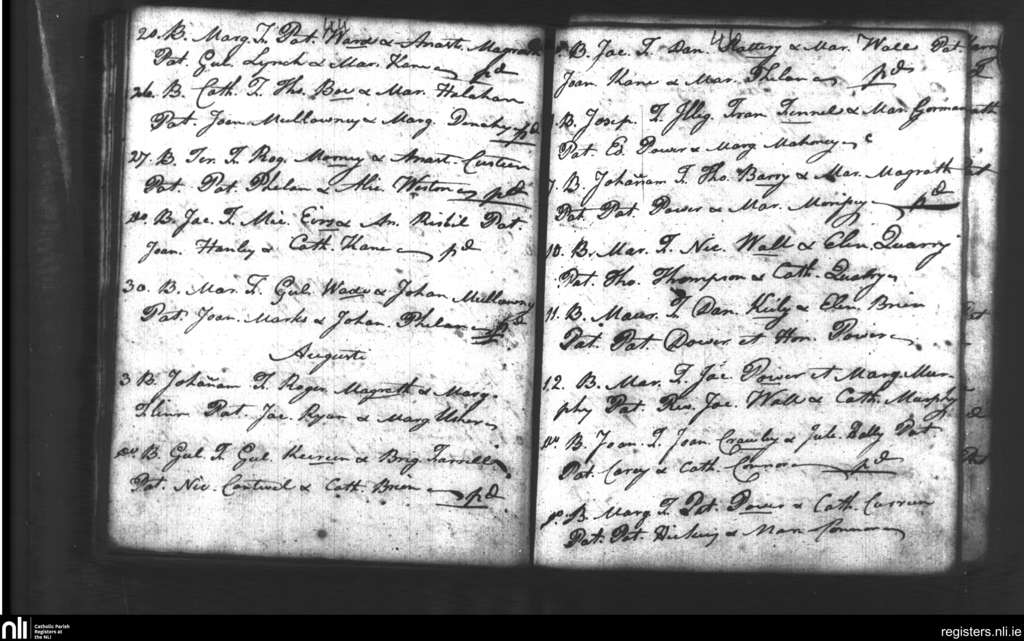 44
20. B. Marg. F. Pat. Ward & Anast. Magrath
Pat. Gul. Lynch & Mar. Kane pd
26. B. Cath. F. Tho. Boe & Mar. Halahan
Pat. Joan Mullowney & Marg. Denehy pd
27. B. Ter. F. Rog. & Anast.
Pat. Pat. Phelan & Alic. Weston pd
do B. Jac. F. Mic. & An. Pat.
Joan. Hanly & Cath. Kane pd
30. B. Mar. F. Gul. Wade & Johan Mullowny
Pat. Joan. Marks & Johan. Phelan pd
Augusti
3 B. Johañam F. Roger Magrath & Marg.
Pat. Jac. Ryan & Marg
B. Gul. F. Gul. & Brig. Farrell
Pat. Nic. Cantwel & Cath. Brien pd
B. Jac. F. Dan. Slattery & Mar. Wall Pat.
Joan Kane & Mar. Phelan pd
B. Josep. F. Illeg. Fran. Fennel & Mar. Gorman
Pat. Ed. Power & Marg Mahoney
7. B. Johañam F. Tho. Barry & Mar. Magrath
Pat. Pat. Power & Mar. pd
10. B. Mar. F. Nic. Wall & Elen. Quarry
Pat. Tho. Thompson & Cath.
11. B. Maur. F. Dan. Kiely & Elen. Brien
Pat. Pat. Power et Hon. Power
12. B. Mar. F. Jac. Power et Marg. Mur-
phy Pat. Rev. Jac. Wall & Cath. Murphy
do B. Joan. F. Joan. Crowly & Jul. Pat.
Pat. Carey & Cath. Connor pd
B. Marg. F. Pat. Power & Cath. Curreen
Pat. Pat. Hickey & Mar. Connor
nli
Catholic Parish
Registers at
the NLI
registers.nli.ie